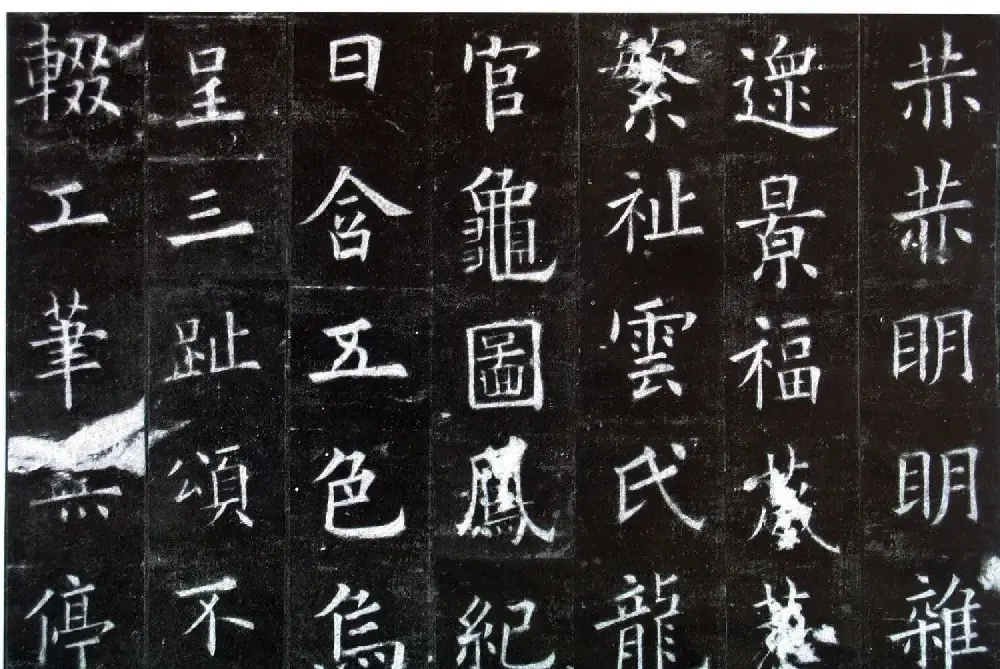 赫赫眀眀雜
遝景福葳蕤
繁祉雲氏龍
官龜圖鳳紀
日含五色烏
呈三趾頌不
輟工筆無停